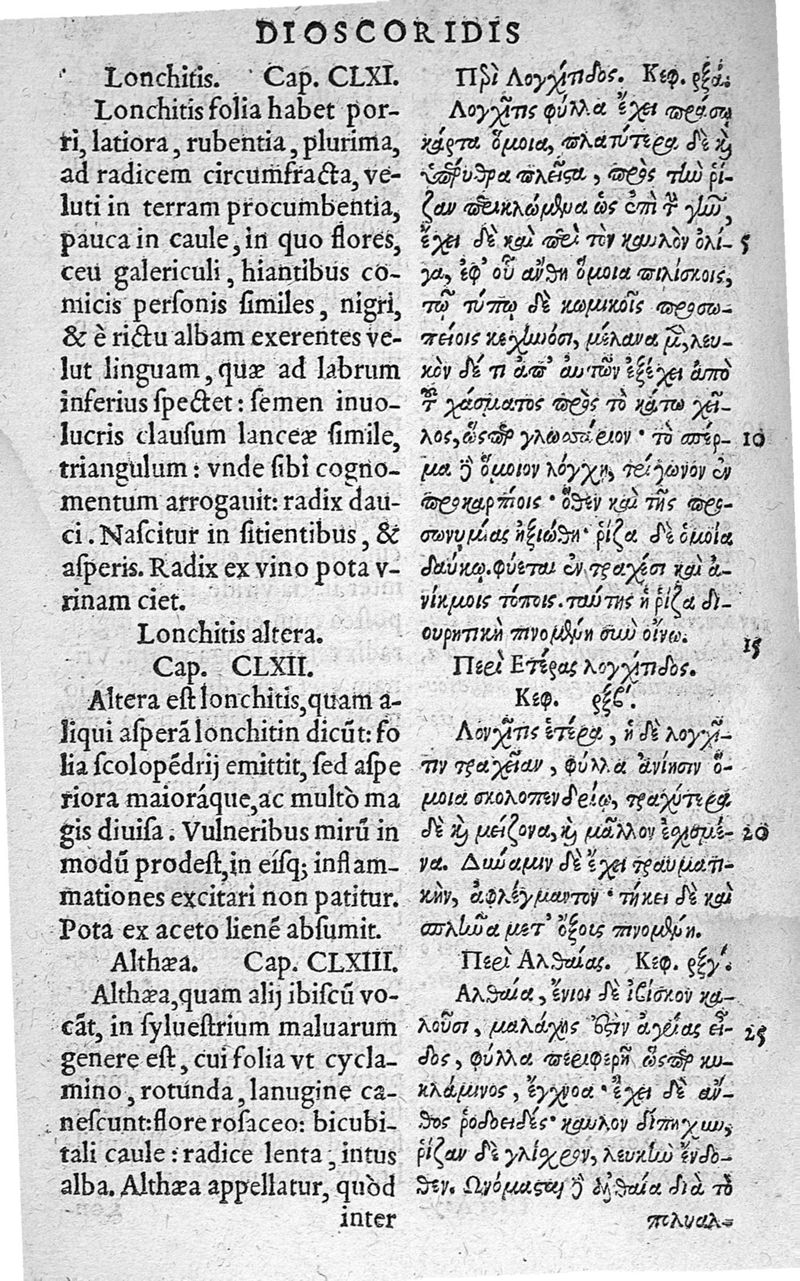 DIOSCORIDIS
Lonchitis. Cap. CLXI.
Lonchitis folia habet por-
ri, latiora, rubentia, plurima,
ad radicem circumfracta, ve-
luti in terram procumbentia,
pauca in caule, in quo flores,
ceu galericuli, hiantibus co-
micis personis similes, nigri,
& è rictu albam exerentes ve-
lut linguam, quæ ad labrum
inferius spectet: semen inuo-
lucris clausum lanceæ simile,
triangulum: vnde sibi cogno-
mentum arrogauit: radix dau-
ci. Nascitur in sitientibus, &
asperis. Radix ex vino pota v-
rinam ciet.
Lonchitis altera.
Cap. CLXII.
Altera est lonchitis, quam a-
liqui asperā lonchitin dicūt: fo
lia scolopēdrij emittit, sed aspe
riora maioráque, ac multò ma
gis diuisa. Vulneribus mirū in
modū prodest, in eísq; inflam-
mationes excitari non patitur.
Pota ex aceto lienē absumit.
Althæa. Cap. CLXIII.
Althæa, quam alij ibiscū vo-
cāt, in syluestrium maluarum
genere est, cui folia vt cycla-
mino, rotunda, lanugine ca-
nescunt: flore rosaceo: bicubi-
tali caule: radice lenta, intus
alba. Althæa appellatur, quòd
inter
Περὶ Λογχίτιδος. Κεφ. ρξά.
Λογχῖτις φύλλα ἔχει πράσῳ
κάρτα ὅμοια, πλατύτερα δὲ καὶ
ὑπέρυθρα πλεῖστα, πρὸς τὴν ῥί-
ζαν περικλώμενα ὡς ἐπὶ τ γῆν,
ἔχει δὲ καὶ περὶ τὸν καυλὸν ὀλί- 5
γα, ἐφ' οὗ ἄνθη ὅμοια πιλίσκοις,
τῷ τύπῳ δὲ κωμικοῖς προσω-
πείοις κεχηνόσι, μέλανα μὲν, λευ-
κὸν δέ τι ἀπ' αὐτῶν ἐξέχει ἀπὸ
τοῦ χάσματος πρὸς τὸ κάτω χεῖ-
λος, ὥσπερ γλωσσάριον· τὸ σπέρ- 10
μα δὲ ὅμοιον λόγχῃ, τρίγωνον ἐν
προκαρπίοις· ὅθεν καὶ τῆς προ-
σωνυμίας ἠξιώθη· ῥίζα δὲ ὁμοία
δαύκῳ. φύεται ἐν τραχέσι καὶ ἀ-
νίκμοις τόποις. ταύτης ἡ ῥίζα δι-
ουρητικὴ πινομένη σὺν οἴνῳ. 15
Περὶ Ετέρας λογχίτιδος.
Κεφ. ρξβ'.
Λονχῖτις ἑτέρα, ἡ δὲ λογχῖ-
τιν τραχεῖαν, φύλλα ἀνίησιν ὅ-
μοια σκολοπενδρίῳ, τραχύτερα
δὲ καὶ μείζονα, καὶ μᾶλλον ἐσχισμέ- 20
να. Δύναμιν δὲ ἔχει τραυματι-
κὴν, ἀφλέγμαντον· τήκει δὲ καὶ
σπλῆνα μετ' ὄξοις πινομένη.
Περὶ Αλθαίας. Κεφ. ρξγ'.
Αλθαία, ἔνιοι δὲ ἰβίσκον κα-
λοῦσι, μαλάχης ἐστὶν ἀγρίας εἶ- 25
δος, φύλλα περιφερῆ ὥσπερ κυ-
κλάμινος, ἔγχνοα· ἔχει δὲ ἄν-
θος ῥοδοειδές· καυλὸν δίπηχυν,
ῥίζαν δὲ γλίσχρον, λευκὴν ἔνδο-
θεν. Ωνόμασται δὲ ἀλθαία διὰ τὸ
πολυαλ-